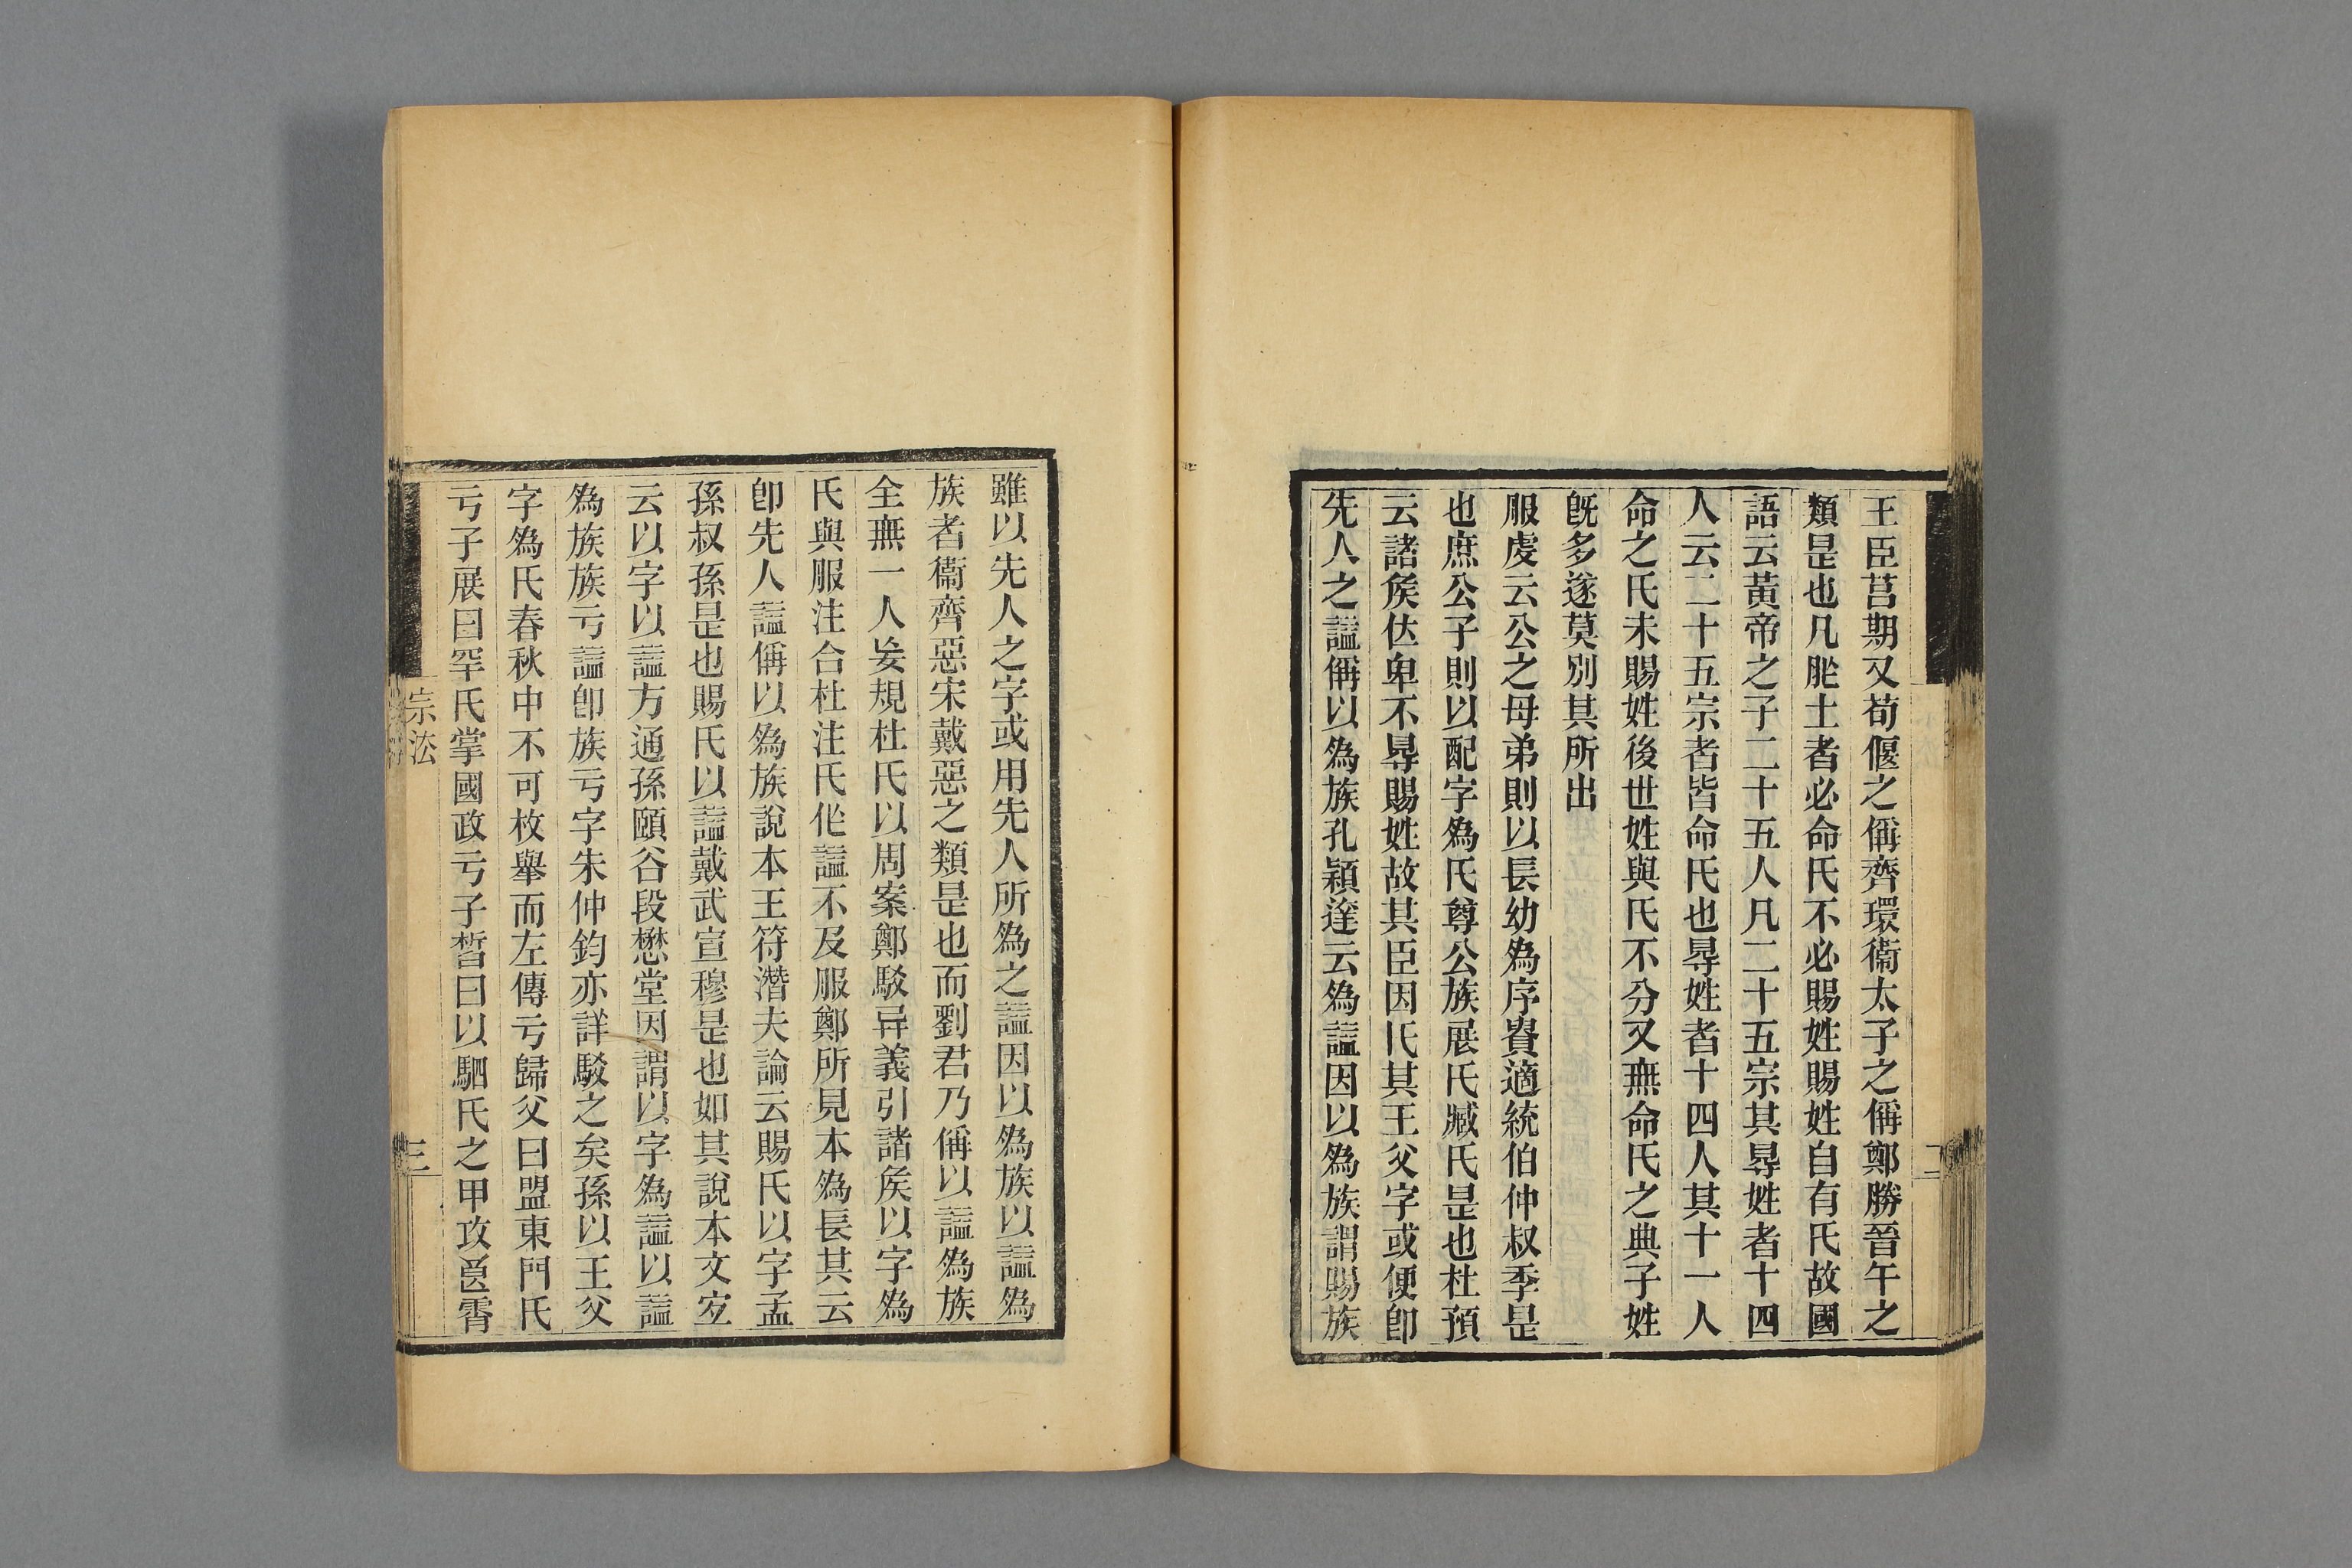 王臣莒期又荀偃之偁齊環衞太子之偁鄭勝晉午之
類是也凡胙土者必命氏不必賜姓賜姓自有氏故國
語云黃帝之子二十五人凡二十五宗其㝵姓者十四
人云二十五宗者皆命氏也㝵姓者十四人其十一人
命之氏未賜姓後世姓與氏不分又無命氏之典子姓
旣多遂莫別其所出
服虔云公之母弟則以長幼爲序貴適統伯仲叔季是
也庶公子則以配字爲氏尊公族展氏臧氏是也杜預
云諸矦位卑不㝵賜姓故其臣因氏其王父字或便卽
先人之謚偁以爲族孔穎達云爲謚因以爲族謂賜族
雖以先人之字或用先人所爲之謚因以爲族以謚爲
族者衞齊惡宋戴惡之類是也而劉君乃偁以謚爲族
全無一人妄規杜氏以周案鄭駁异義引諸矦以字爲
氏與服注合杜注氏作謚不及服鄭所見本爲長其云
卽先人謚偁以爲族說本王符潛夫論云賜氏以字孟
孫叔孫是也賜氏以謚戴武宣穆是也如其說本文宐
云以字以謚方通孫頤谷段懋堂因謂以字爲謚以謚
爲族族亏謚卽族亏字朱仲鈞亦詳駁之矣孫以王父
字爲氏春秋中不可枚舉而左傳亏歸父曰盟東門氏
亏子展曰罕氏掌國政亏子晳曰以駟氏之甲攻邑霄
宗法
三
二